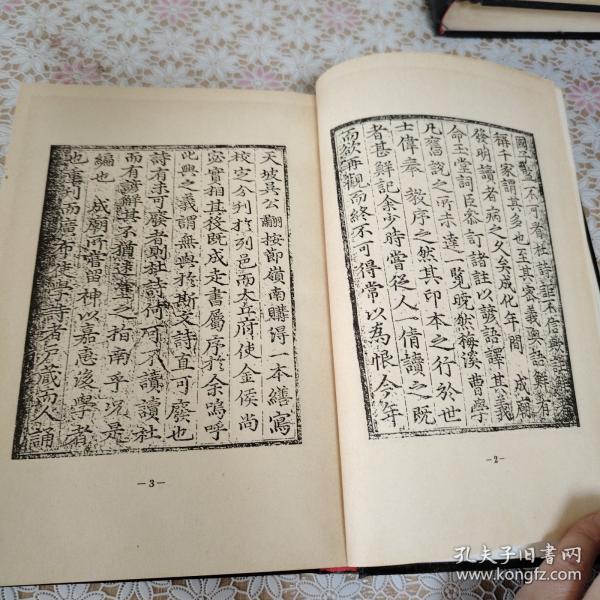 不可者杜詩
稱千家謂其多也至其密義奧語鮮有
發明讀者病之久矣成化年間 成廟
命玉堂詞臣參訂諸註以諺語譯其義
凡舊說之所未達一覽曉然梅溪曹學
士偉奉教序之然其印本之行於世
者甚鮮記余少時嘗從人一倩讀之既
而欲再觀而終不可得常以為恨今年
-2-
天坡吳公䎘按節嶺南購得一本繕寫
校定分刊於列邑而大丘府使金侯尚
宓實相其役既成走書屬序於余嗚呼
比興之義謂無與於斯文詩直可廢也
詩有未可廢者則杜詩何可不讀讀杜
而有諺解其不猶迷塗之指南乎況是
編也 成廟所嘗留神以嘉惠後學者
也重刊而廣布使學詩者戶藏而人誦
-3-
孔夫子旧书网
www.kongfz.com